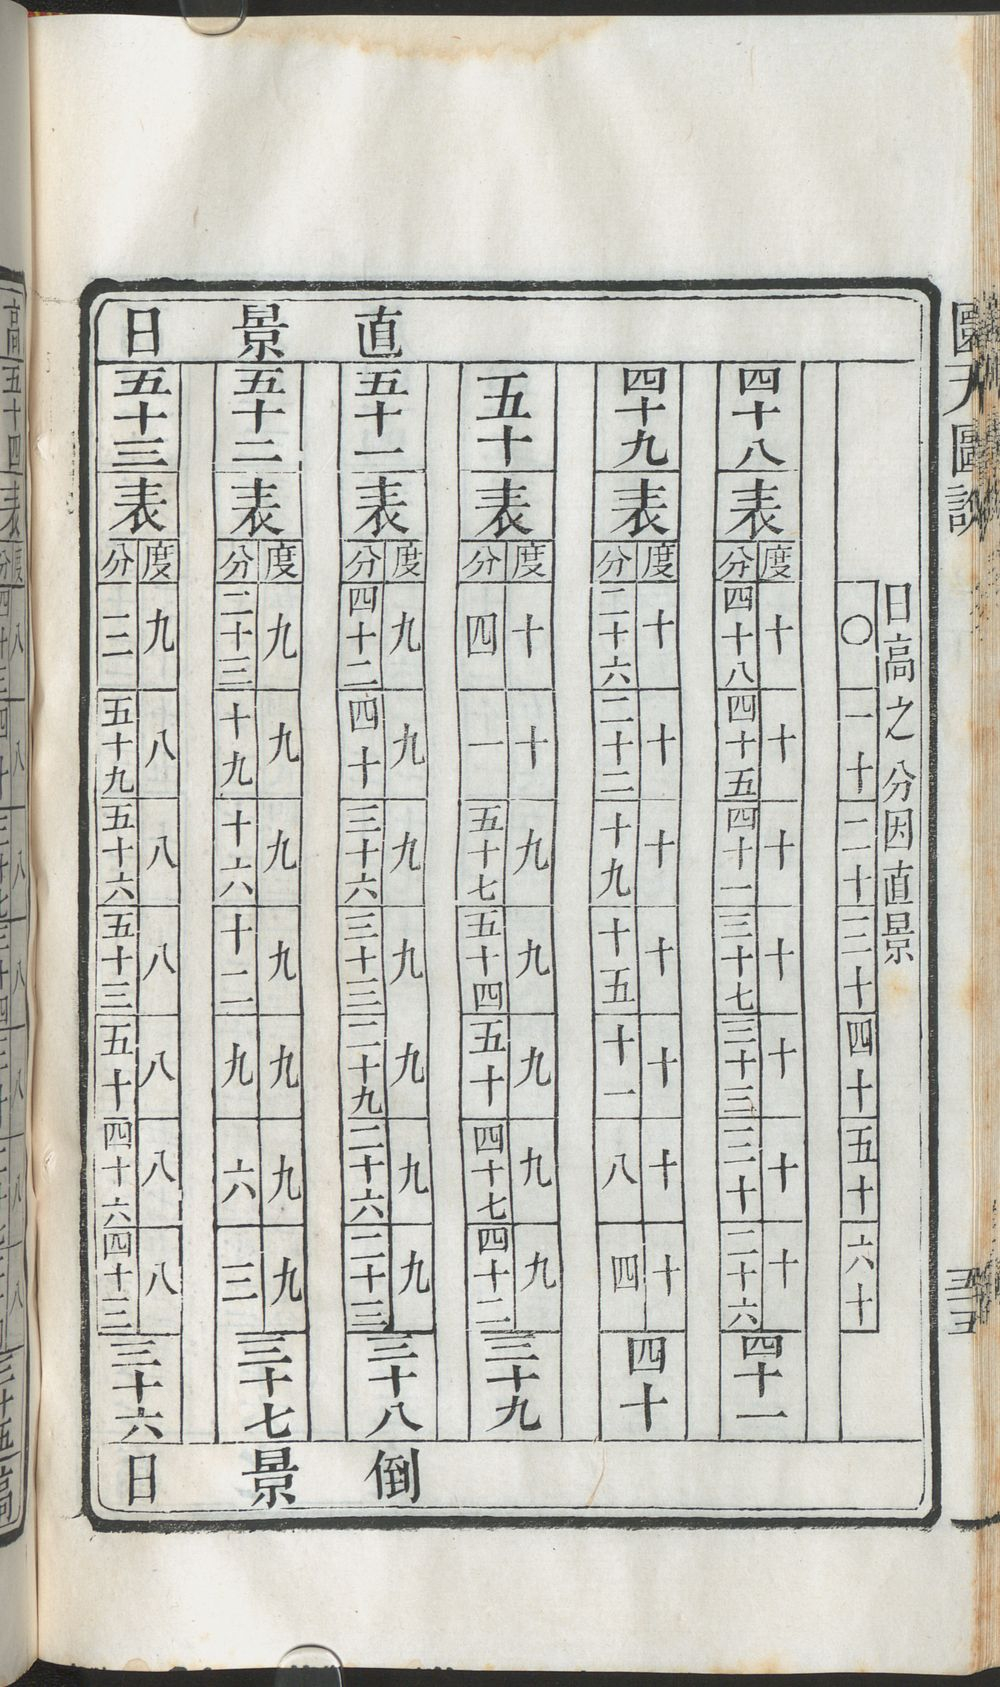 圜天圖說
直景日
日高之分因直景
〇 一十 二十 三十 四十 五十 六十
四十八
表
度 十 十 十 十 十 十 十
分 四十八 四十五 四十一 三十七 三十三 三十 二十六
四十一
四十九
表
度 十 十 十 十 十 十 十
分 二十六 二十二 十九 十五 十一 八 四
四十
五十
表
度 十 十 九 九 九 九 九
分 四 一 五十七 五十四 五十 四十七 四十二
三十九
五十一
表
度 九 九 九 九 九 九 九
分 四十二 四十 三十六 三十三 二十九 二十六 二十三
三十八
五十二
表
度 九 九 九 九 九 九 九
分 二十三 十九 十六 十二 九 六 三
三十七
五十三
表
度 九 八 八 八 八 八 八
分 三 五十九 五十六 五十三 五十 四十六 四十三
三十六
倒景日
高
五十四
表